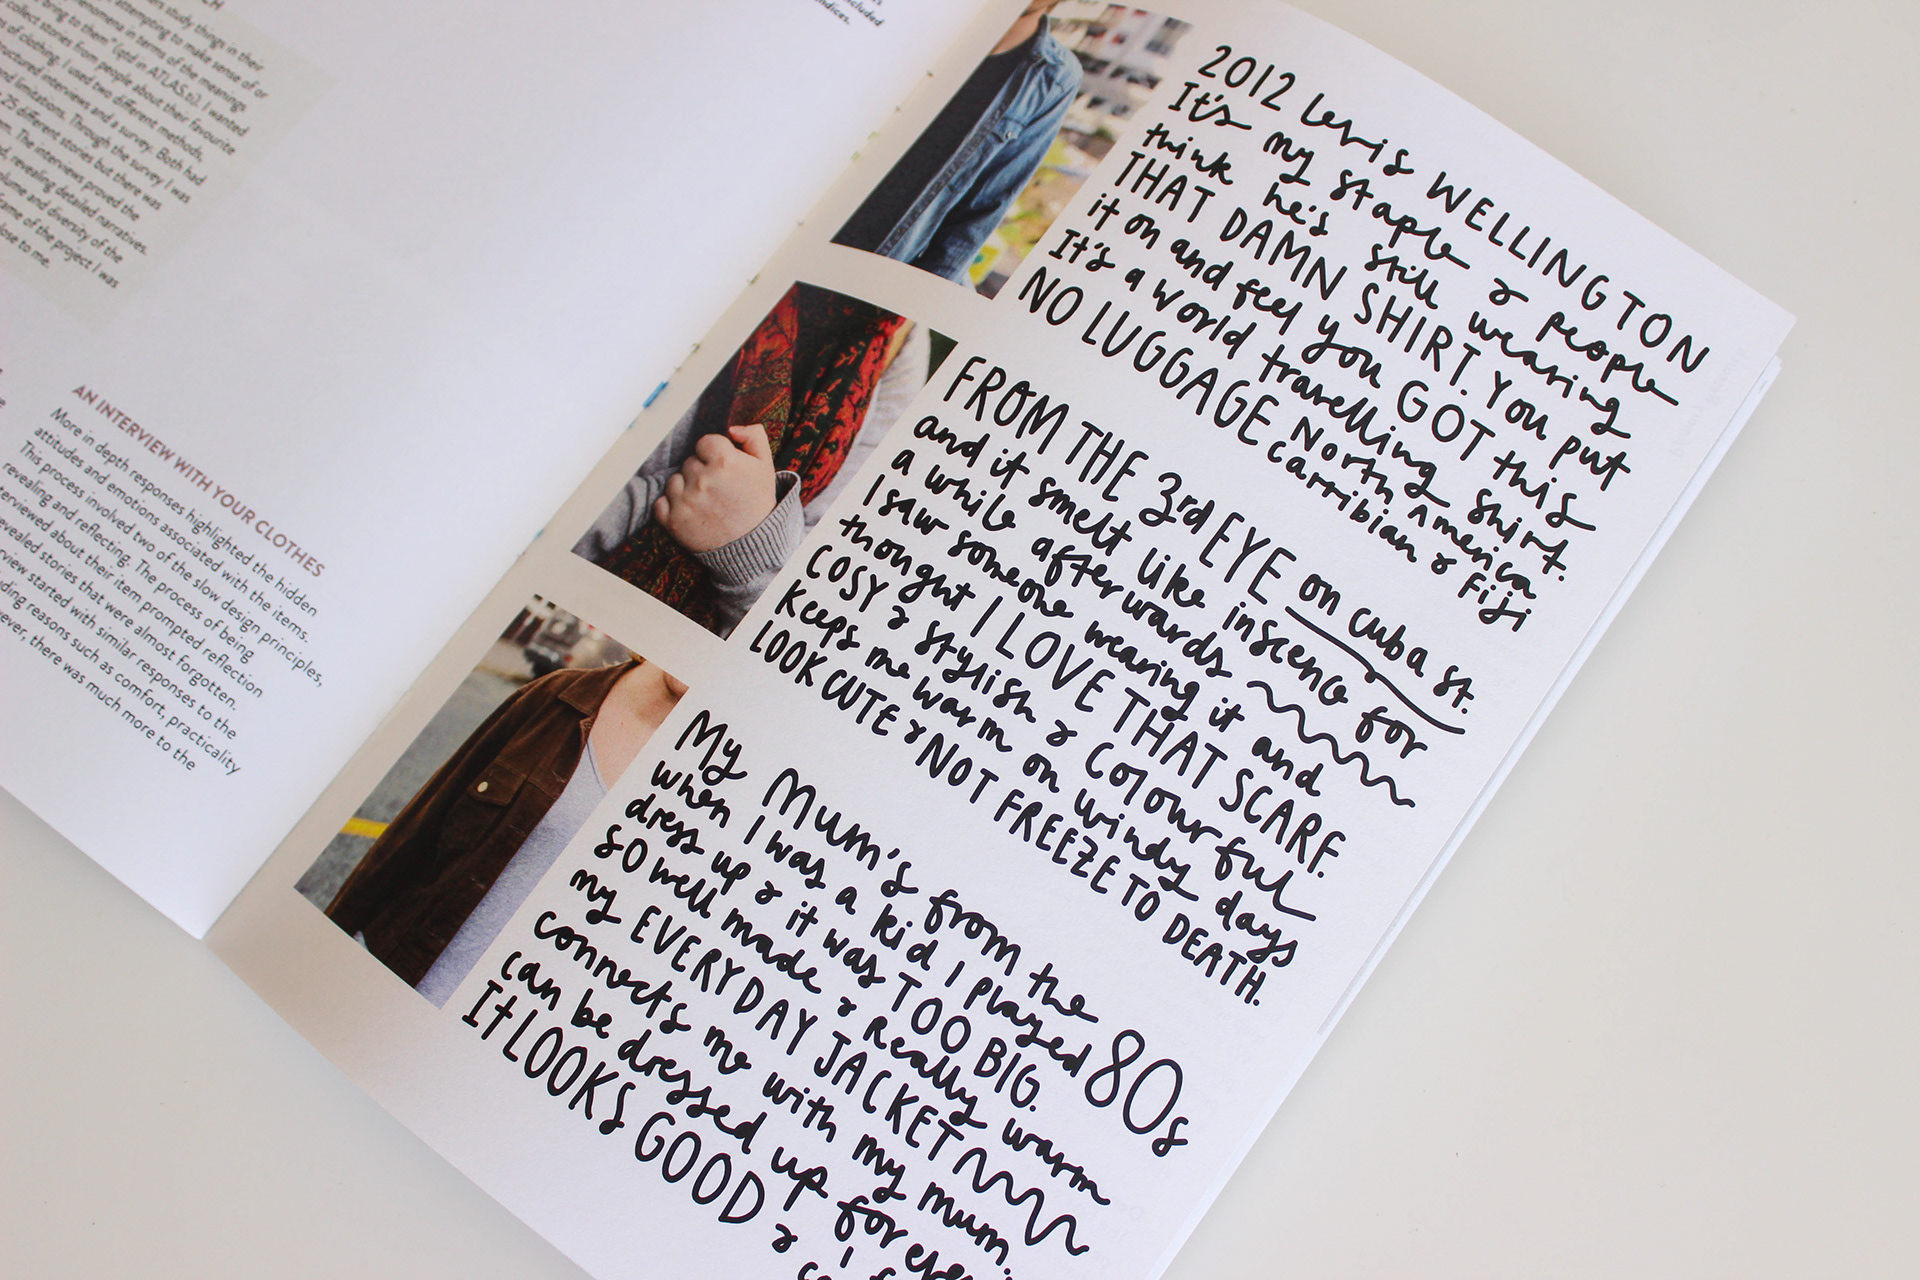 CH
study things in their
attempting to make sense of or
phenomena in terms of the meanings
bring to them" (qtd in ATLAS.ti). I wanted
collect stories from people about their favourite
of clothing. I used two different methods,
structured interviews and a survey. Both had
and limitations. Through the survey I was
25 different stories but there was
The interviews proved the
revealing detailed narratives.
volume and diversity of the
frame of the project I was
close to me.
included
indices.
AN INTERVIEW WITH YOUR CLOTHES
More in depth responses highlighted the hidden
attitudes and emotions associated with the items.
This process involved two of the slow design principles,
revealing and reflecting. The process of being
interviewed about their item prompted reflection
revealed stories that were almost forgotten.
view started with similar responses to the
ding reasons such as comfort, practicality
ever, there was much more to the
2012 Levis WELLINGTON
It's my staple & people
think he's still wearing
THAT DAMN SHIRT. You put
it on and feel you GOT this
It's a world travelling shirt.
NO LUGGAGE North America
carribian & Fiji
FROM THE 3rd EYE on cuba st.
and it smelt like inscence for
a while afterwards
I saw someone wearing it and
thought I LOVE THAT SCARF.
COSY & stylish & colourful
keeps me warm on windy days
LOOK CUTE & NOT FREEZE TO DEATH.
My Mum's from the 80s
when I was a kid I played
dress up & it was TOO BIG.
SO well made & really warm
my EVERYDAY JACKET
connects me with my mum.
can be dressed up for
It LOOKS GOOD & I